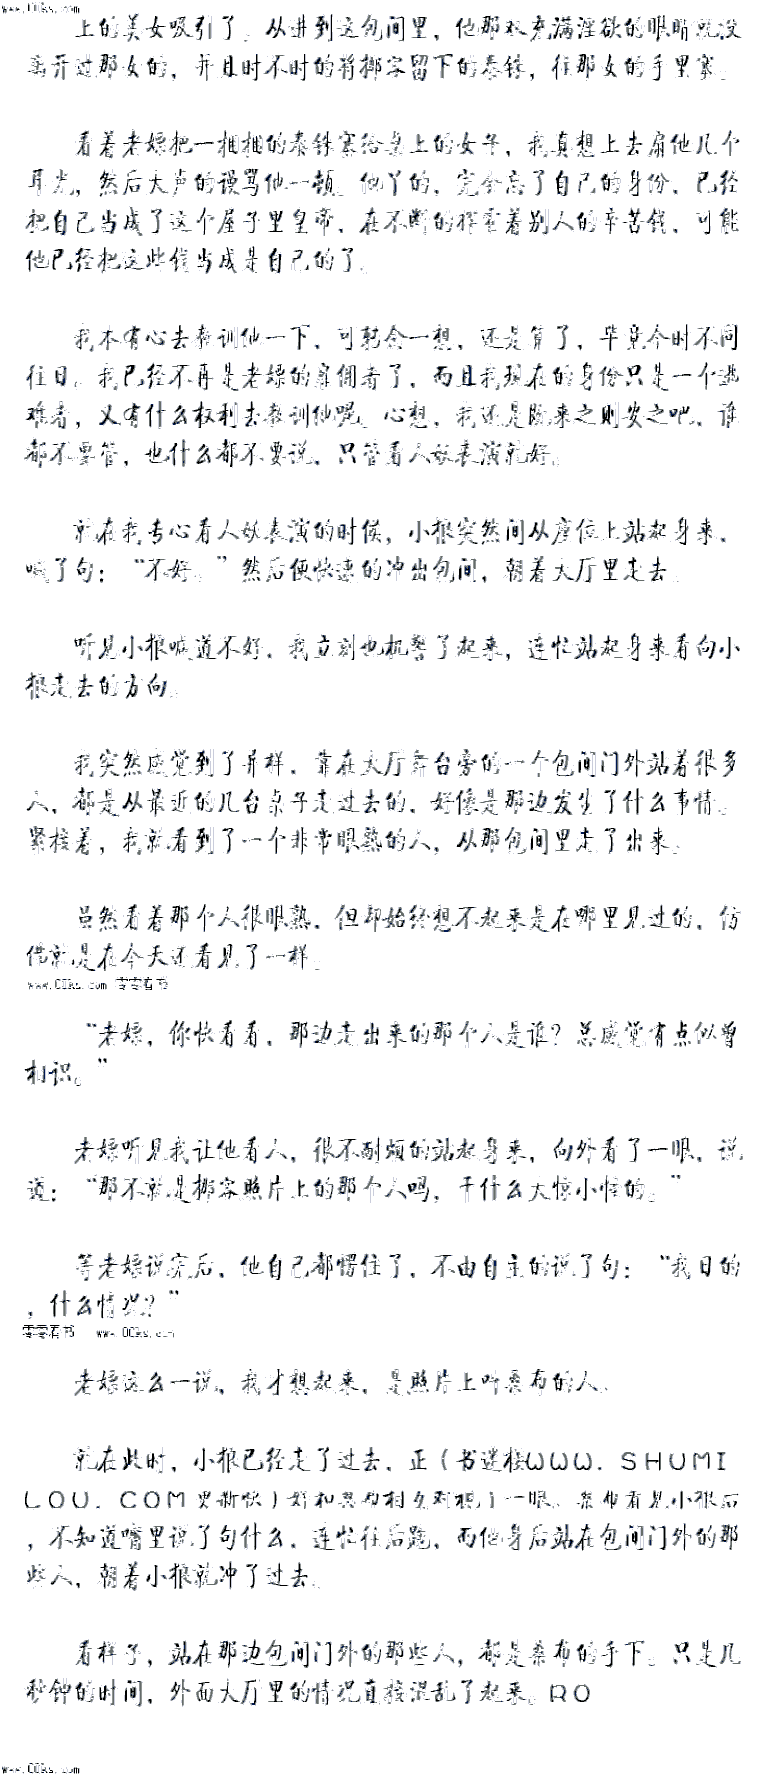 www.00ks.com
上的美女吸引了。从进到这包间里，他那双充满淫欲的眼睛就没
离开过那女的，并且时不时的将挪客留下的泰铢，往那女的手里塞。
看着老嫖把一捆捆的泰铢塞给桌上的女子，我真想上去扇他几个
耳光，然后大声的谩骂他一顿。他丫的，完全忘了自己的身份，已经
把自己当成了这个屋子里皇帝，在不断的挥霍着别人的辛苦钱，可能
他已经把这些钱当成是自己的了。
我本有心去教训他一下，可转念一想，还是算了，毕竟今时不同
往日。我已经不再是老嫖的雇佣者了，而且我现在的身份只是一个逃
难者，又有什么权利去教训他呢。心想，我还是既来之则安之吧，谁
都不要管，也什么都不要说，只管看人妖表演就好。
就在我专心看人妖表演的时候，小狼突然间从座位上站起身来，
喊了句：“不好。”然后便快速的冲出包间，朝着大厅里走去。
听见小狼喊道不好，我立刻也机警了起来，连忙站起身来看向小
狼走去的方向。
我突然感觉到了异样，靠在大厅舞台旁的一个包间门外站着很多
人，都是从最近的几台桌子走过去的，好像是那边发生了什么事情。
紧接着，我就看到了一个非常眼熟的人，从那包间里走了出来。
虽然看着那个人很眼熟，但却始终想不起来是在哪里见过的，仿
佛就是在今天还看见了一样。
www.00ks.com 零零看书
“老嫖，你快看看，那边走出来的那个人是谁？总感觉有点似曾
相识。”
老嫖听见我让他看人，很不耐烦的站起身来，向外看了一眼，说
道：“那不就是挪客照片上的那个人吗，干什么大惊小怪的。”
等老嫖说完后，他自己都愣住了，不由自主的说了句：“我日的
，什么情况？”
零零看书 www.00ks.com
老嫖这么一说，我才想起来，是照片上叫桑布的人。
就在此时，小狼已经走了过去，正（书迷楼WWW．SHUMI
LOU．COM更新快）好和桑布相互对视了一眼。桑布看见小狼后
，不知道嘴里说了句什么，连忙往后跑，而他身后站在包间门外的那
些人，朝着小狼就冲了过去。
看样子，站在那边包间门外的那些人，都是桑布的手下。只是几
秒钟的时间，外面大厅里的情况直接混乱了起来。RO
www.00ks.com